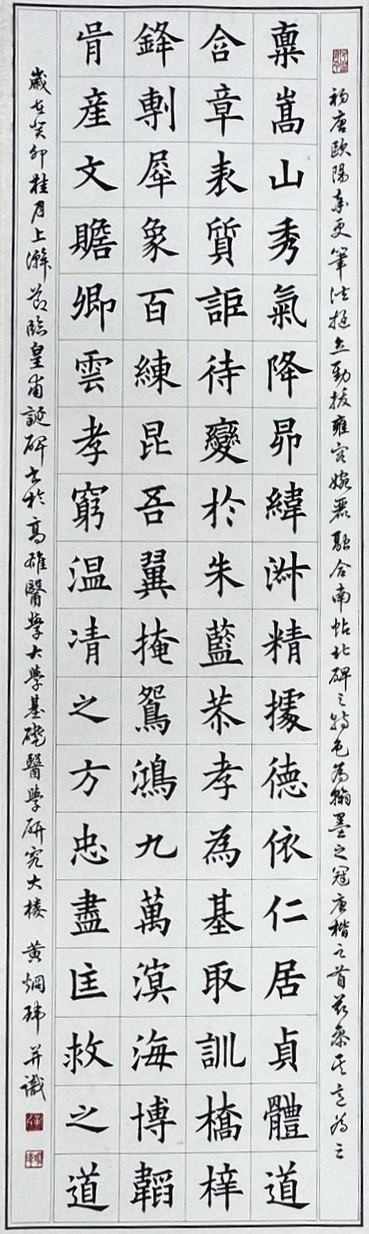 初唐歐陽率更筆法挺立勁拔雍容婉麗融合南帖北碑之特色為翰墨之冠唐楷之首茲參其意為之
稟嵩山秀氣降昴緯淑精據德依仁居貞體道
含章表質詎待變於朱藍恭孝為基取訓橋梓
鋒剸犀象百練昆吾翼掩鴛鴻九萬溟海博韜
胄産文贍卿雲孝窮温凊之方忠盡匡救之道
歲在癸卯桂月上澣節臨皇甫誕碑書於高雄醫學大學基礎醫學研究大樓 黃烱瑋 并識